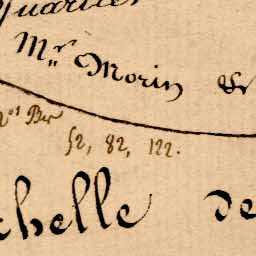 Quartier
Mr Morin &
Nos
52, 82, 122.
chelle de